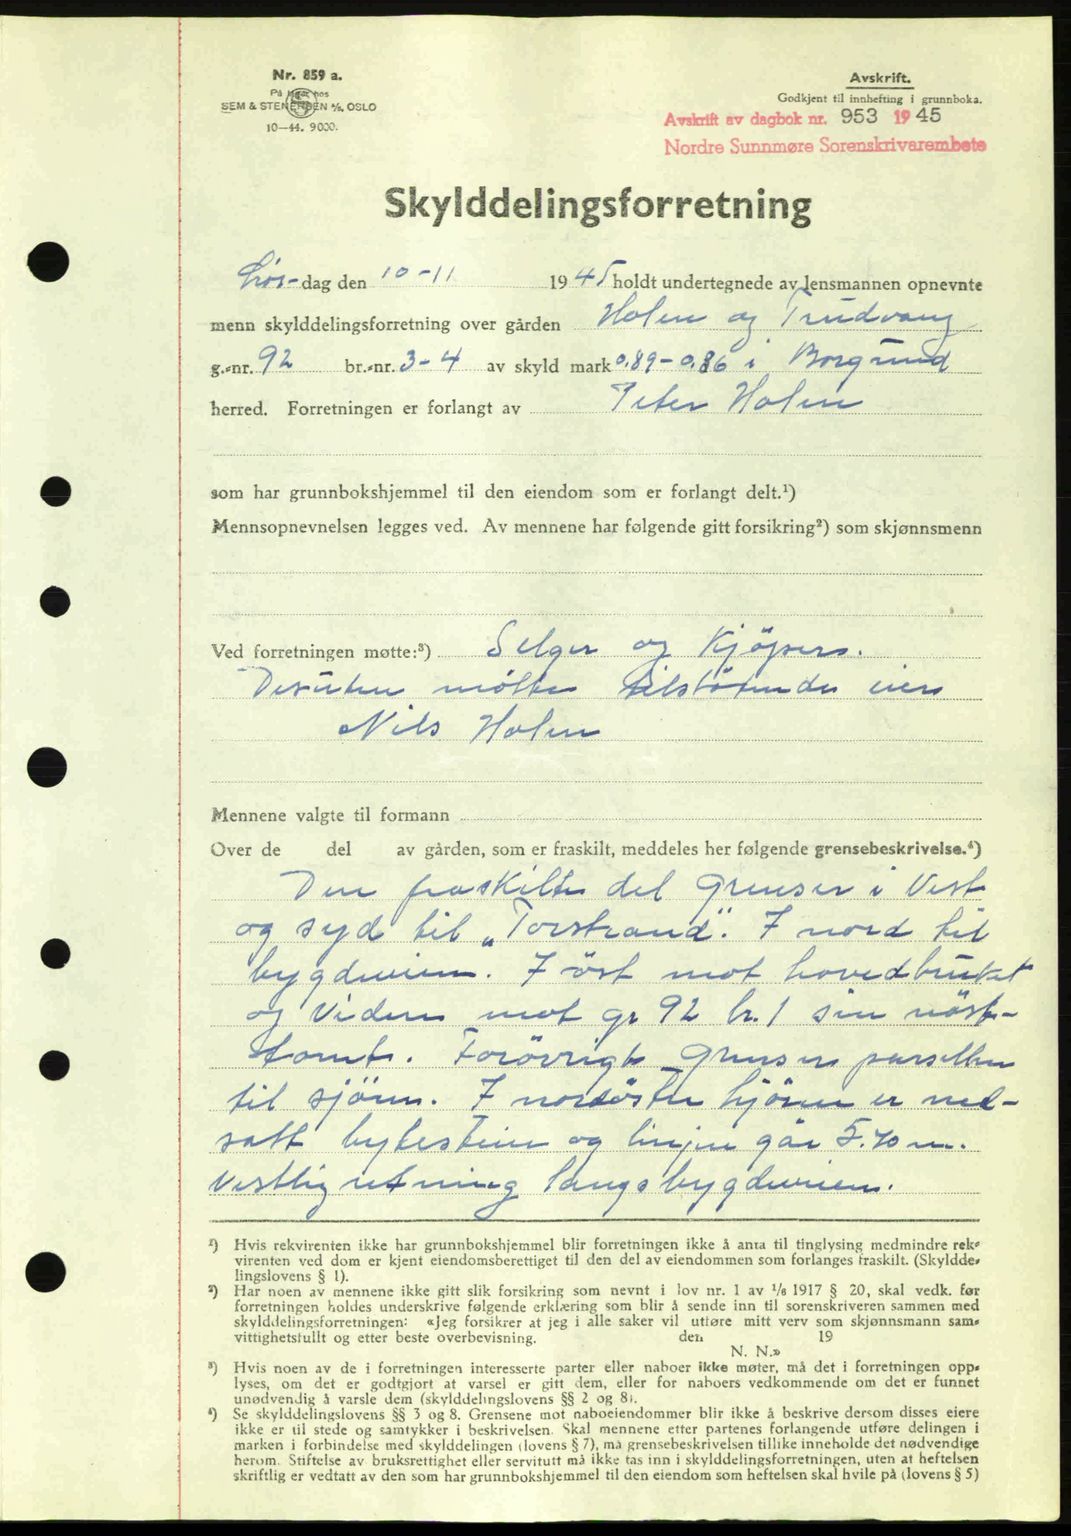 Nr. 859 a.
På lager hos
SEM & STENERSEN A/S, OSLO
10—44. 9000.
Avskrift.
Godkjent til innhefting i grunnboka.
Avskrift av dagbok nr. 953 1945
Nordre Sunnmøre Sorenskrivarembete
Skylddelingsforretning
Lør-dag den 10-11 1945 holdt undertegnede av lensmannen opnevnte
menn skylddelingsforretning over gården Holen og Trudvang
g.-nr. 92 br.-nr. 3-4 av skyld mark 0.89-0.86 i Borgund
herred. Forretningen er forlangt av Peter Holen
som har grunnbokshjemmel til den eiendom som er forlangt delt.¹)
Mennsopnevnelsen legges ved. Av mennene har følgende gitt forsikring²) som skjønnsmenn
Ved forretningen møtte:³) Selger og Kjöpere.
Desuten mötte tilstötende eier
Nils Holen
Mennene valgte til formann
Over de del av gården, som er fraskilt, meddeles her følgende grensebeskrivelse.⁴)
Den fraskilte del grenser i Vest
og syd til „Torstrand". I nord til
bygdeveien. I öst mot hovedbruket
og Videre mot gr 92 br. 1 sin nöst-
tomt. Forövrigt grenser parsellen
til sjöen. I nordöstre hjörne er ned-
satt bytestein og linjen går 5.70 m.
Vestlig retning langs bygdeveien.
¹) Hvis rekvirenten ikke har grunnbokshjemmel blir forretningen ikke å anta til tinglysing medmindre rek-
virenten ved dom er kjent eiendomsberettiget til den del av eiendommen som forlanges fraskilt. (Skyldde-
lingslovens § 1).
²) Har noen av mennene ikke gitt slik forsikring som nevnt i lov nr. 1 av 1/6 1917 § 20, skal vedk. før
forretningen holdes underskrive følgende erklæring som blir å sende inn til sorenskriveren sammen med
skylddelingsforretningen: «Jeg forsikrer at jeg i alle saker vil utføre mitt verv som skjønnsmann sam-
vittighetsfullt og etter beste overbevisning. den 19
N. N.»
³) Hvis noen av de i forretningen interesserte parter eller naboer ikke møter, må det i forretningen opp-
lyses, om det er godtgjort at varsel er gitt dem, eller for naboers vedkommende om det er funnet
unødvendig å varsle dem (skylddelingslovens §§ 2 og 8).
⁴) Se skylddelingslovens §§ 3 og 8. Grensene mot naboeiendommer blir ikke å beskrive dersom disses eiere
ikke er til stede og samtykker i beskrivelsen. Skal mennene etter partenes forlangende utføre delingen i
marken i forbindelse med skylddelingen (lovens § 7), må grensebeskrivelsen tillike inneholde det nødvendige
herom. Stiftelse av bruksrettighet eller servitutt må ikke tas inn i skylddelingsforretningen, uten at heftelsen
skriftlig er vedtatt av den som har grunnbokshjemmel til den eiendom som heftelsen skal hvile på (lovens § 5)